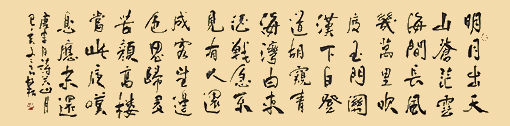 明月出天
山蒼茫雲
海間長風
幾萬里吹
度玉門關
漢下白登
道胡窺青
海灣由來
征戰地不
見有人還
戍客望邊
色思歸多
苦顏高樓
當此夜嘆
息應未還
唐李白詩關山月